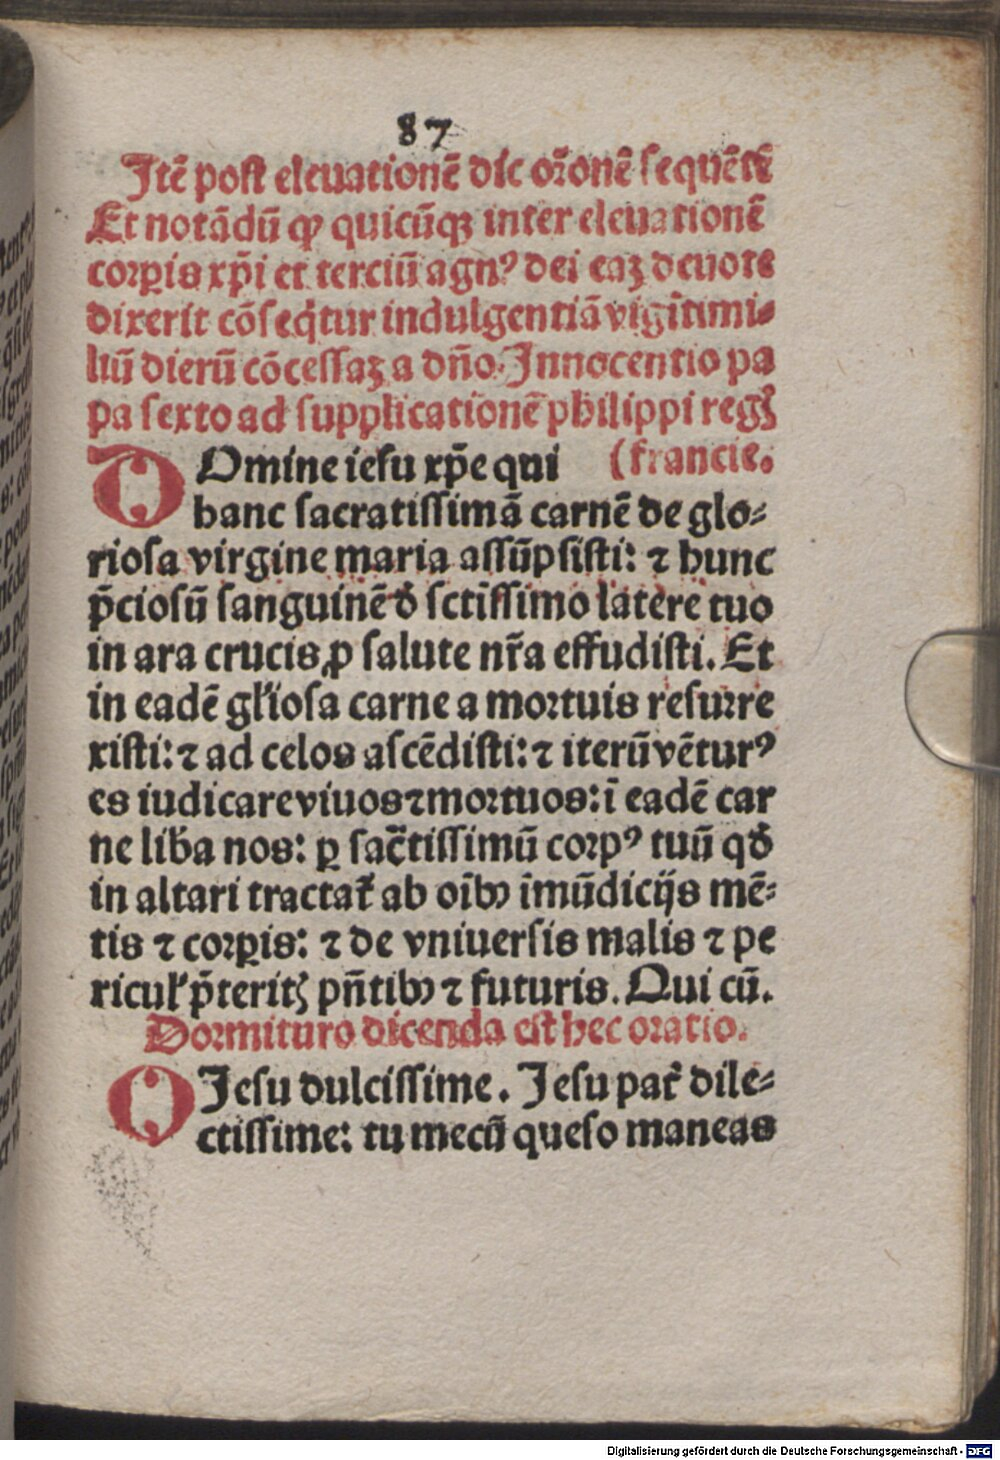 87
Itē post eleuationē dic orōnē sequētē
Et notādū ꝙ quicūqꝫ inter eleuationē
corꝑis xp̄i et terciū agnꝰ dei eaꝫ deuote
dixerit cōseq̄tur indulgentiā vigītimi⸗
liū dierū cōcessaꝫ a dn̄o. Innocentio pa
pa sexto ad supplicationē philippi regꝭ
DOmine iesu xp̄e qui (francie.
hanc sacratissimā carnē de glo⸗
riosa virgine maria assūpsisti: ⁊ hunc
p̄ciosū sanguinē đ sctīssimo latere tuo
in ara crucis ꝓ salute nr̄a effudisti. Et
in eadē gl'iosa carne a mortuis resurre
xisti: ⁊ ad celos ascēdisti: ⁊ iterū vēturꝰ
es iudicare viuos ⁊ mortuos: ī eadē car
ne lib̄a nos: ꝑ sac̄tissimū corpꝰ tuū qđ
in altari tractat᷑ ab oībꝰ īmūdicijs mē⸗
tis ⁊ corꝑis: ⁊ de vniuersis malis ⁊ pe
ricul' p̄teritꝭ pn̄tibꝰ ⁊ futuris. Qui cū.
Dormituro dicenda est hec oratio.
O Jesu dulcissime. Jesu pat᷑ dile⸗
ctissime: tu mecū queso maneas
Digitalisierung gefördert durch die Deutsche Forschungsgemeinschaft - DFG